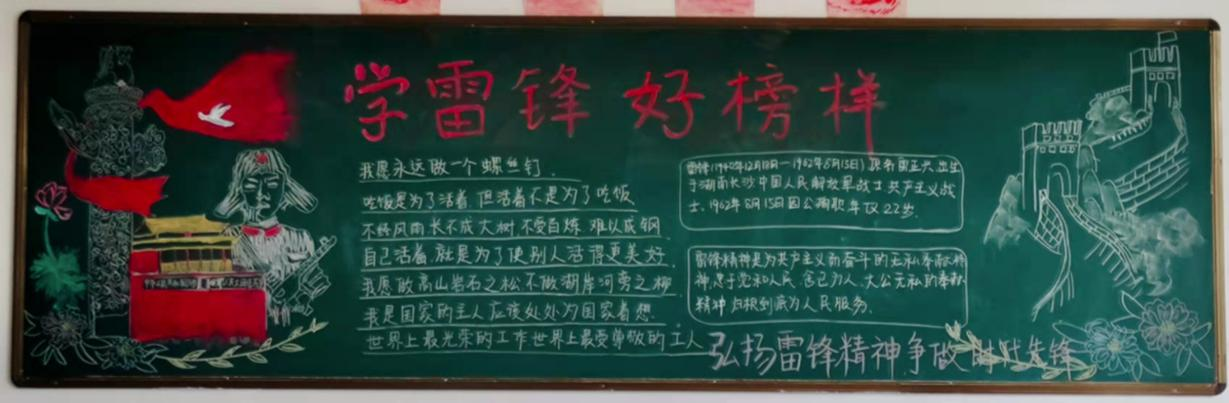 学雷锋 好榜样
我愿永远做一个螺丝钉.
吃饭是为了活着 但活着不是为了吃饭
不经风雨长不成大树 不受百炼 难以成钢
自己活着 就是为了使别人活得更美好.
我愿做高山岩石之松 不做湖岸河旁之柳.
我是国家的主人 应该处处为国家着想.
世界上最光荣的工作 世界上最受尊敬的工人
雷锋(1940年12月18日—1962年8月15日) 原名雷正兴.出生
于湖南长沙 中国人民解放军战士 共产主义战
士.1962年8月15日因公殉职 年仅22岁.
雷锋精神是为共产主义而奋斗的无私奉献精
神,忠于党和人民、舍己为人、大公无私的奉献
精神 归根到底为人民服务.
弘扬雷锋精神争做时代先锋